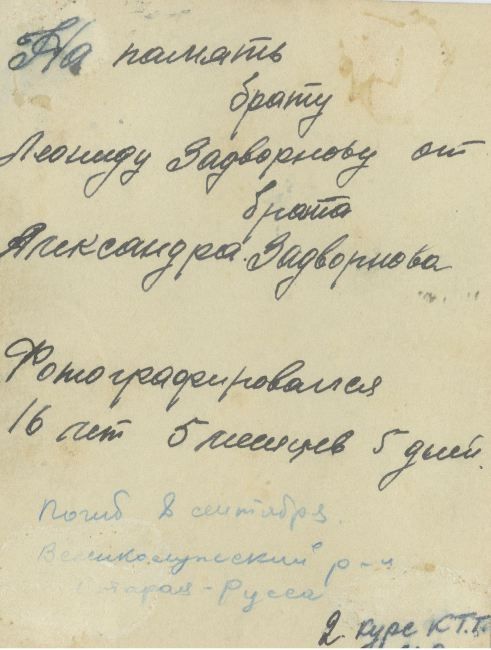 На память
брату
Леониду Задворнову от
брата
Александра Задворнова
Фотографировался
16 лет 5 месяцев 5 дней.
Погиб 8 сентября
Великолукский р-н
Старая-Русса
2 курс К.Т.Т.